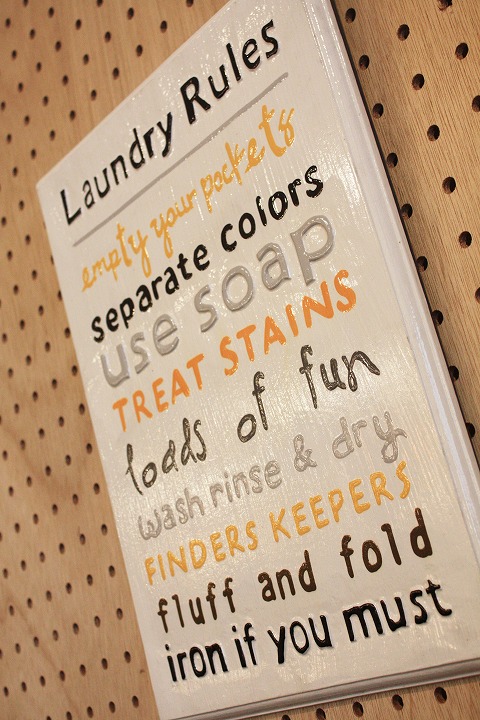 Laundry Rules
empty your pockets
separate colors
use soap
TREAT STAINS
loads of fun
wash rinse & dry
FINDERS KEEPERS
fluff and fold
iron if you must